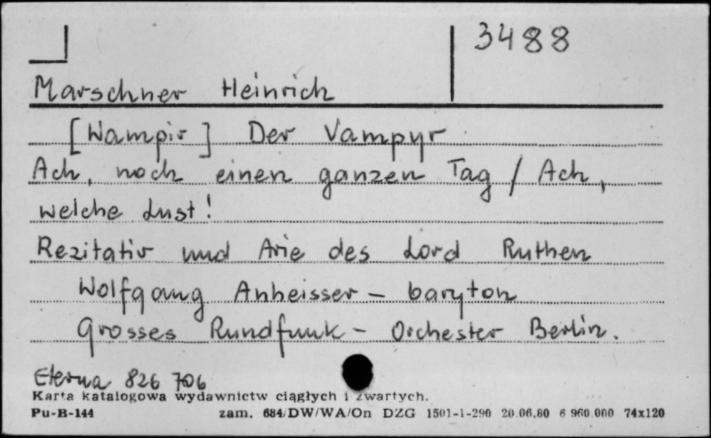 3488
Marschner Heinrich
[Wampir] Der Vampyr
Ach, noch einen ganzen Tag / Ach,
welche Lust!
Rezitativ und Arie des Lord Ruthen
Wolfgang Anheisser - baryton
Grosses Rundfunk - Orchester Berlin.
Eterna 826 706
Karta katalogowa wydawnictw ciągłych i zwartych.
Pu-B-144 zam. 684/DW/WA/On DZG 1501-1-290 20.06.80 6 960.000 74x120